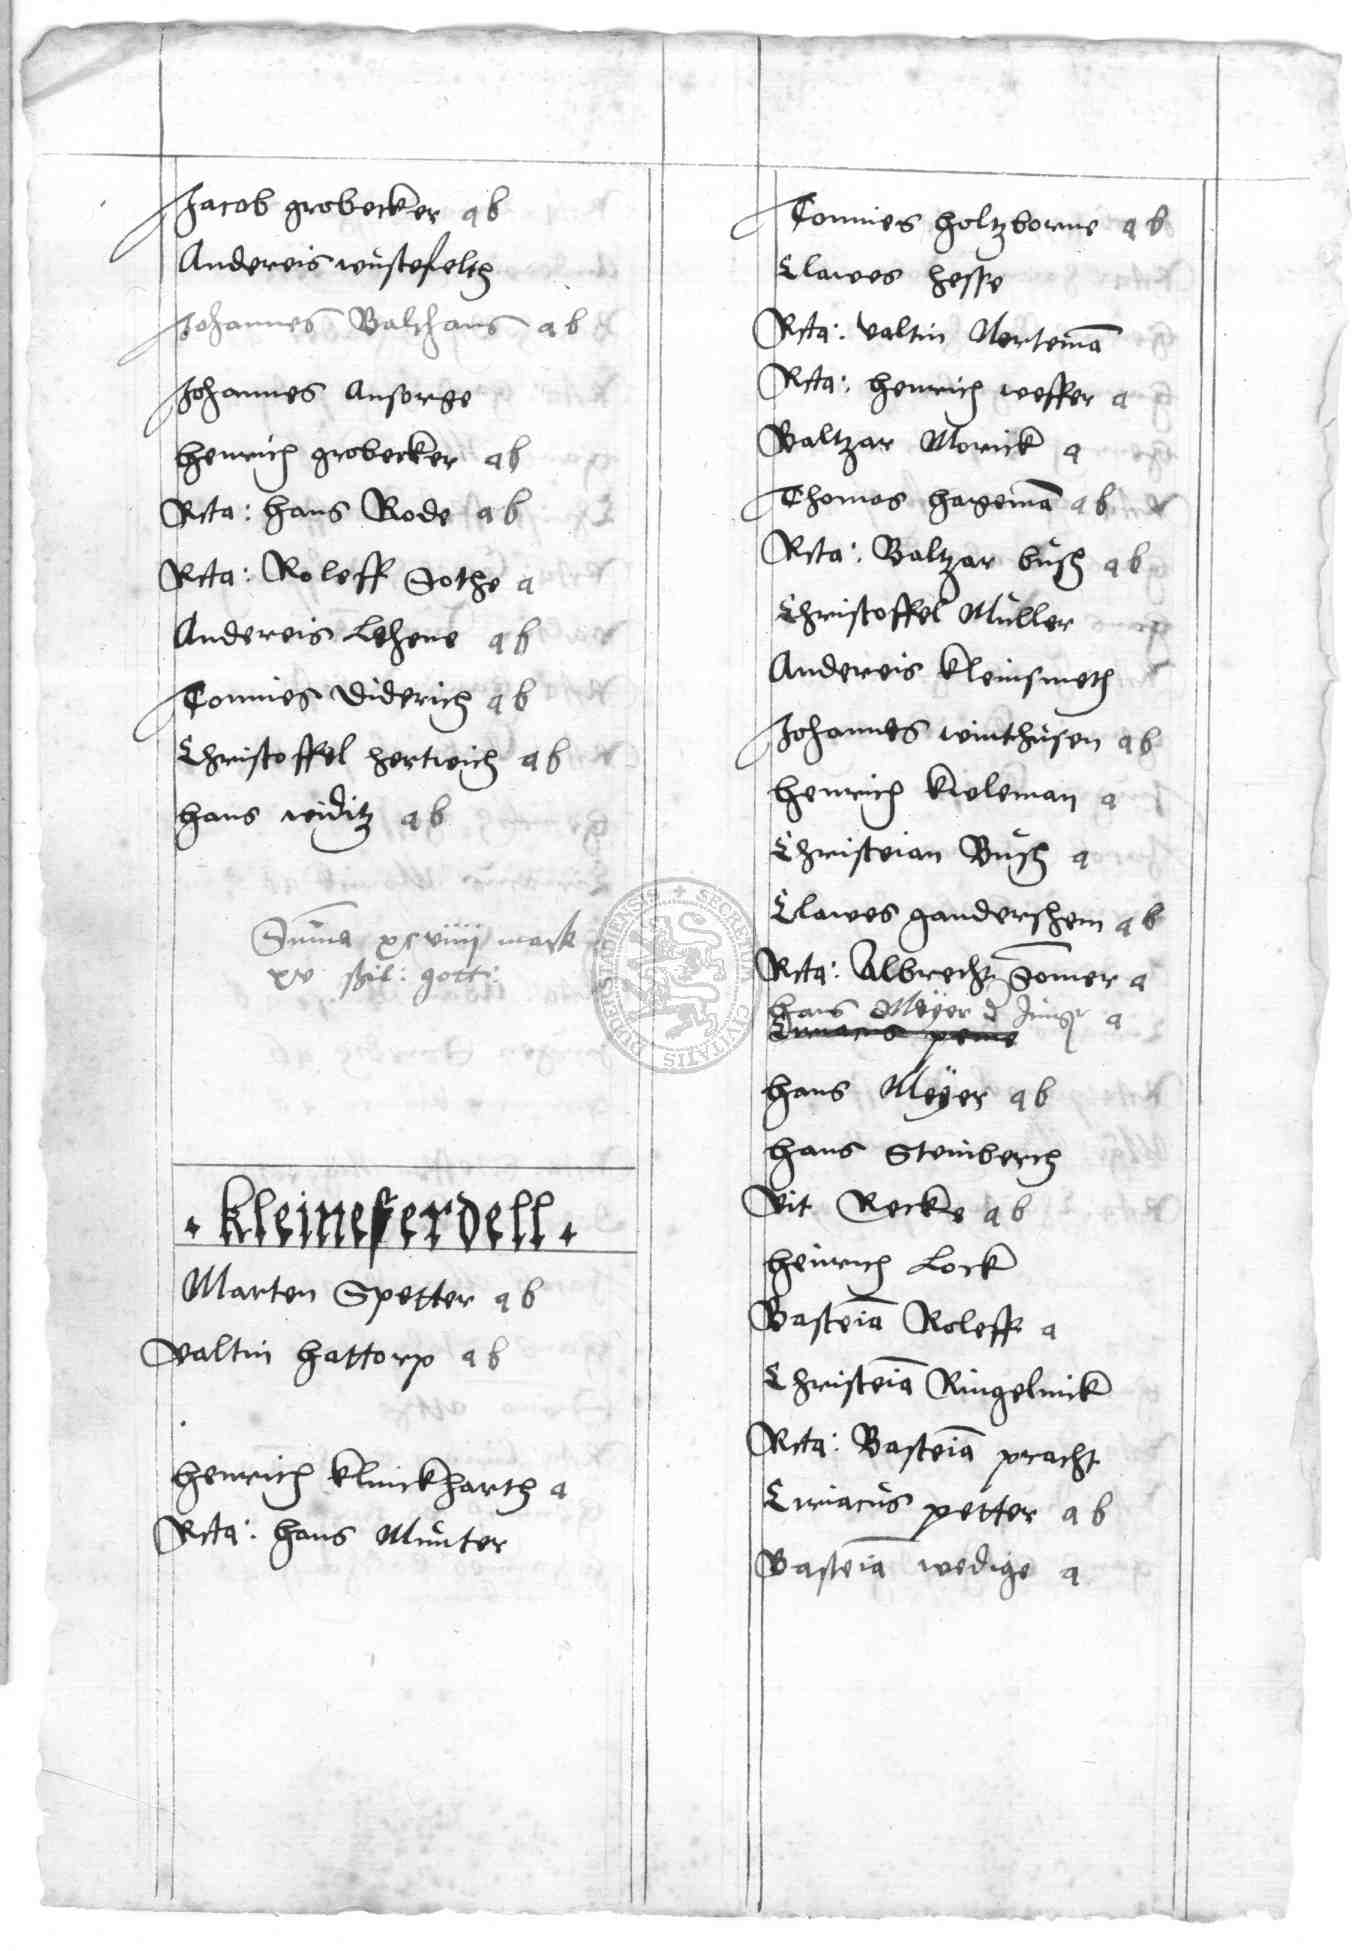 Jacob grobecker a b
Andereis wustefelth
Johannes Balthans a b
Johannes Ansorge
henrich grobecker a b
Rcta: hans Rode a b
Rcta: Roleff Sothe a
Andereis Lehene a b
Tonnies Diderich a b
Christoffel hertwich a b
hans widitz a b
Summa xcviiij mark
xv shil: gott:
kleineferdell
Marten Spetter a b
Valtin hattorp a b
henrich klinckharth a
Rcta: hans Munter
Tonnies holtzborne a b
Clawes hesse
Rcta: valtin Mertemā
Rcta: henrich weffer a
Baltzar Morick a
Thomas hagemā a b
Rcta: Baltzar bush a b
Christoffel Muller
Andereis kleinsmeth
Johannes winthusen a b
henrich kieleman a
Christeian Bush a
Clawes gandershem a b
Rcta: Albrecht Somer a
hans Meÿer d Jung a
Ciriacus
hans Meÿer a b
hans Steinberch
Vit Recke a b
heinrich Lock
Basteiā Roleff a
Christeiā Ringelinck
Rcta: Basteiā pracht
Ciriacus petter a b
Basteiā wedige a
SECRETUM CIVITATIS DUDERSTADIENSIS